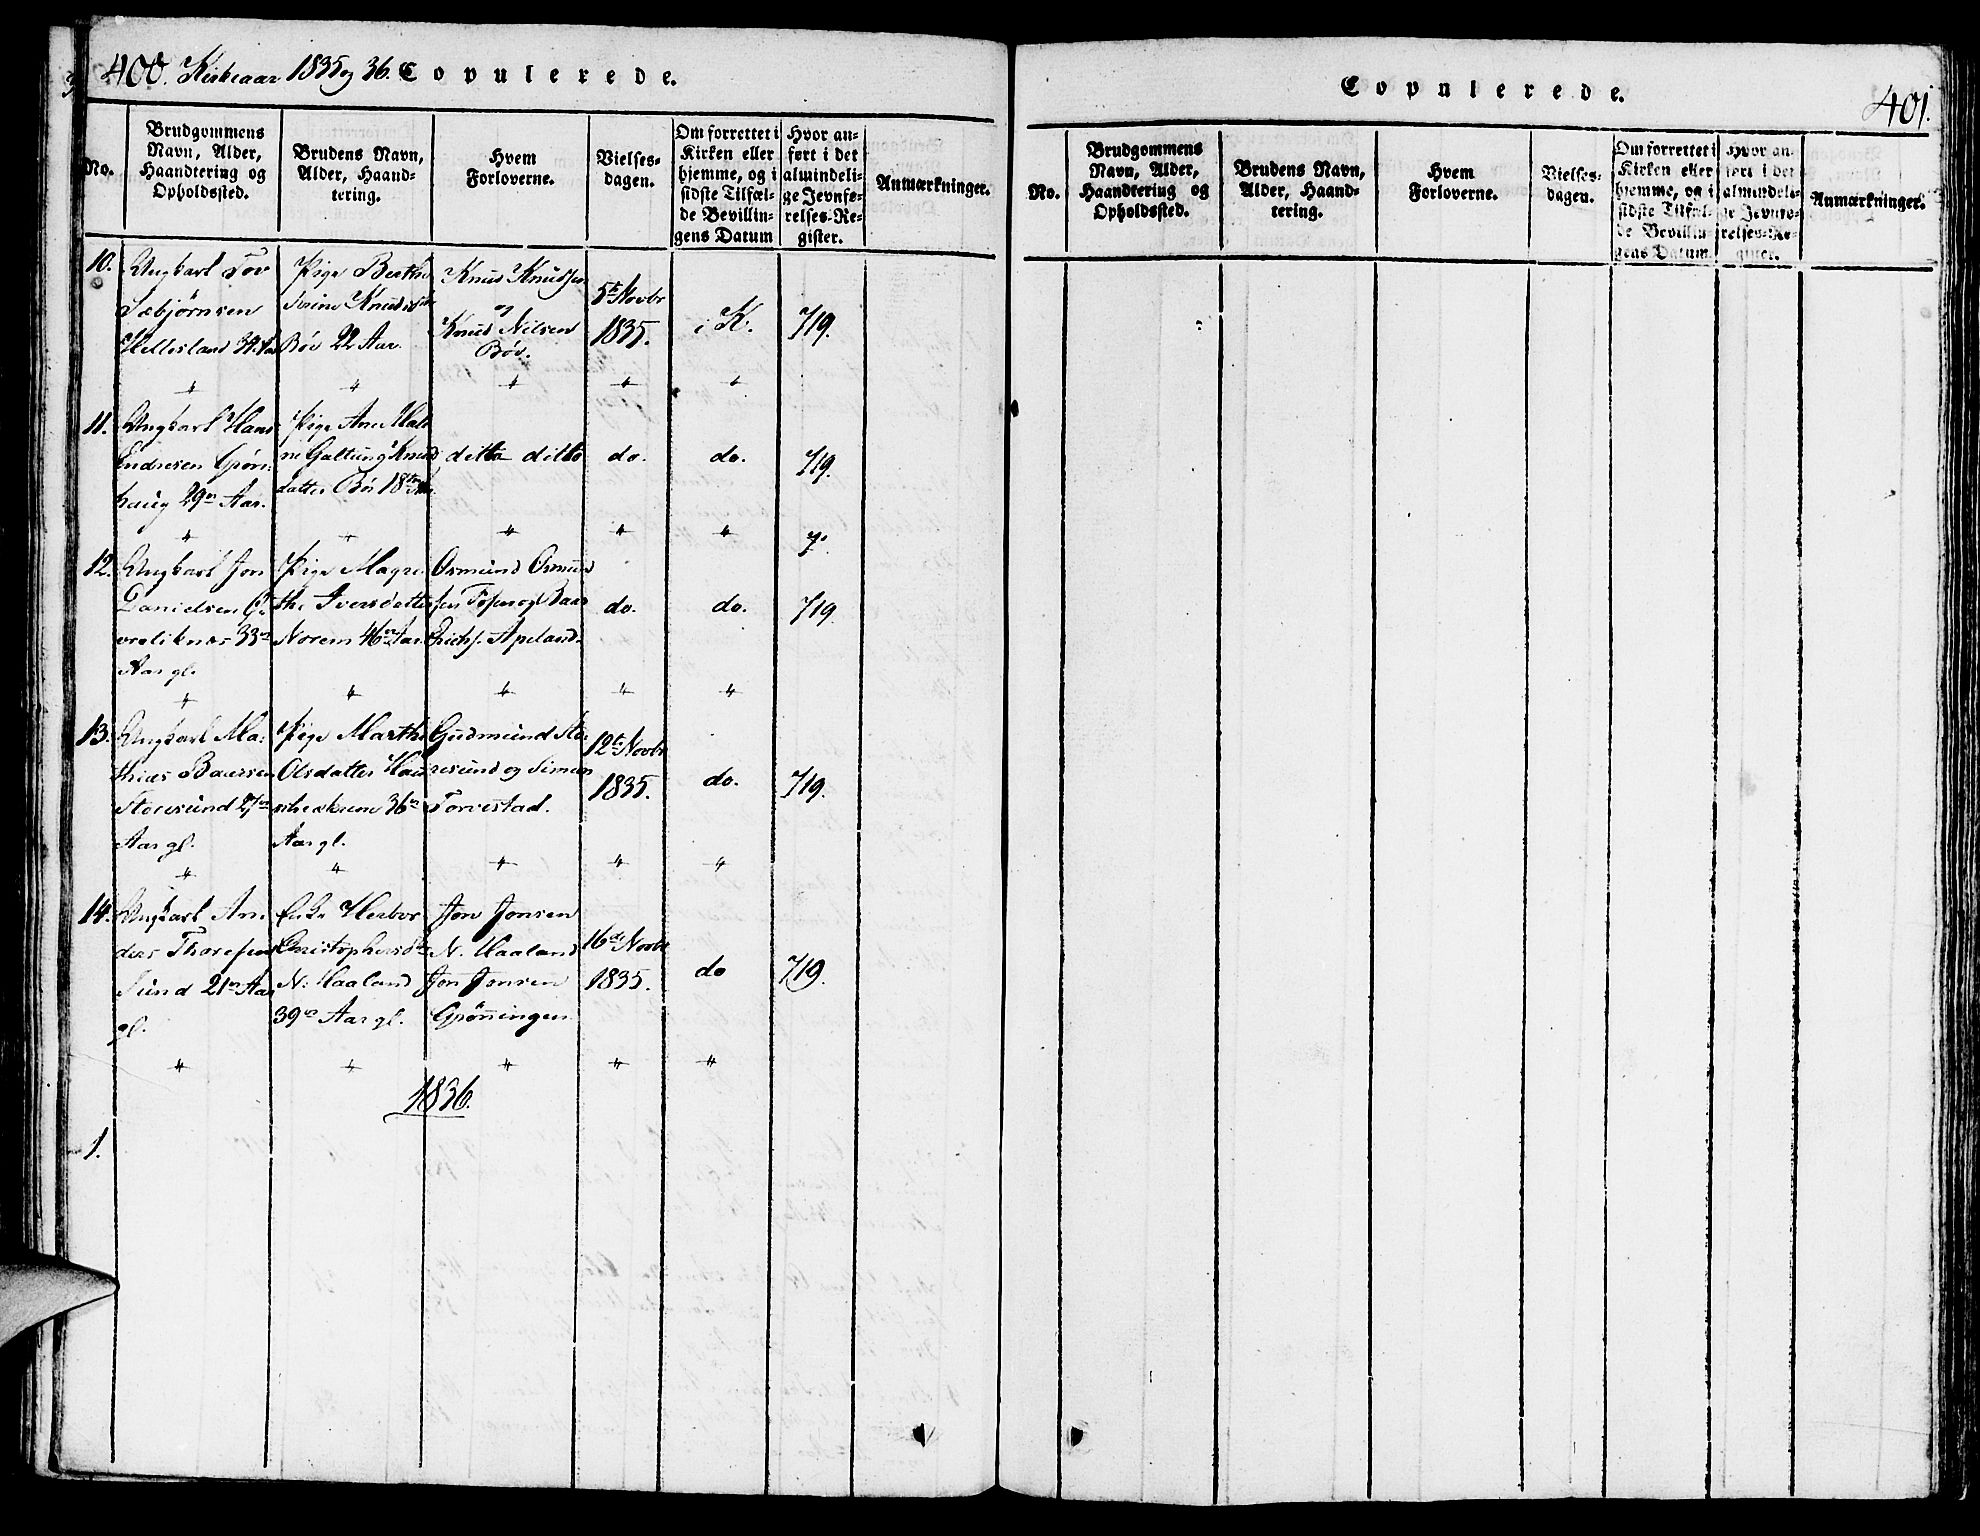 400. Kirkeaar 1835 og 36. Copulerede.
No.
Brudgommens
Navn, Alder,
Haandtering og
Opholdssted.
Brudens Navn,
Alder, Haand-
tering.
Hvem
Forloverne.
Vielses-
dagen.
Om forrettet i
Kirken eller
hjemme, og i
sidste Tilfæl-
de Bevillin-
gens Datum
Hvor an-
ført i det
almindeli-
ge Jevnfø-
relses-Re-
gister.
Anmærkninger.
10.
Ungkarl Tov
Sæbjørnsen
Hellesland
Pige Berthe
Knudsd
Bøe 22 Aar.
Knud Knudsen
og
Knud Nilsen
Bøe.
5te Novbr
1835.
i K.
719.
11.
Ungkarl Hans
Endresen Grøn
haug 29 Aar.
Pige Ane Mal
ne Galtung Knud
datter Bøe 18
ditto ditto
do.
do.
719.
12.
Ungkarl Jon
Danielsen
33
Aar gl.
Pige Magre
the Iversdatter
Norem 46 Aar
Osmund Osmund
sen og Baar
Erichs. Apeland.
do.
do.
719.
13.
Ungkarl Ma-
thias Baarsen
Storesund 27
Aar gl.
Pige Marthe
Olsdatter Hau
skeskreen 36
Aar gl.
Gudmund Sto-
resund og Simon
Torvestad.
12te Novbr
1835.
do.
719.
14.
Ungkarl An-
ders Thoresen
Sund 21 Aar
gl.
Enke Herbor
Christophersd
N. Haaland
39 Aar gl.
Jon Jonsen
N. Haaland
Jon Jonsen
Grønningen
16de Novbr
1835.
do
719.
1836.
1.
Copulerede.
401.
No.
Brudgommens
Navn, Alder,
Haandtering og
Opholdssted.
Brudens Navn,
Alder, Haand-
tering.
Hvem
Forloverne.
Vielses-
dagen.
Om forrettet i
Kirken eller
hjemme, og i
sidste Tilfæl-
de Bevillin-
gens Datum.
Hvor an-
ført i det
almindeli-
ge Jevnfø-
relses-Re-
gister.
Anmærkninger.